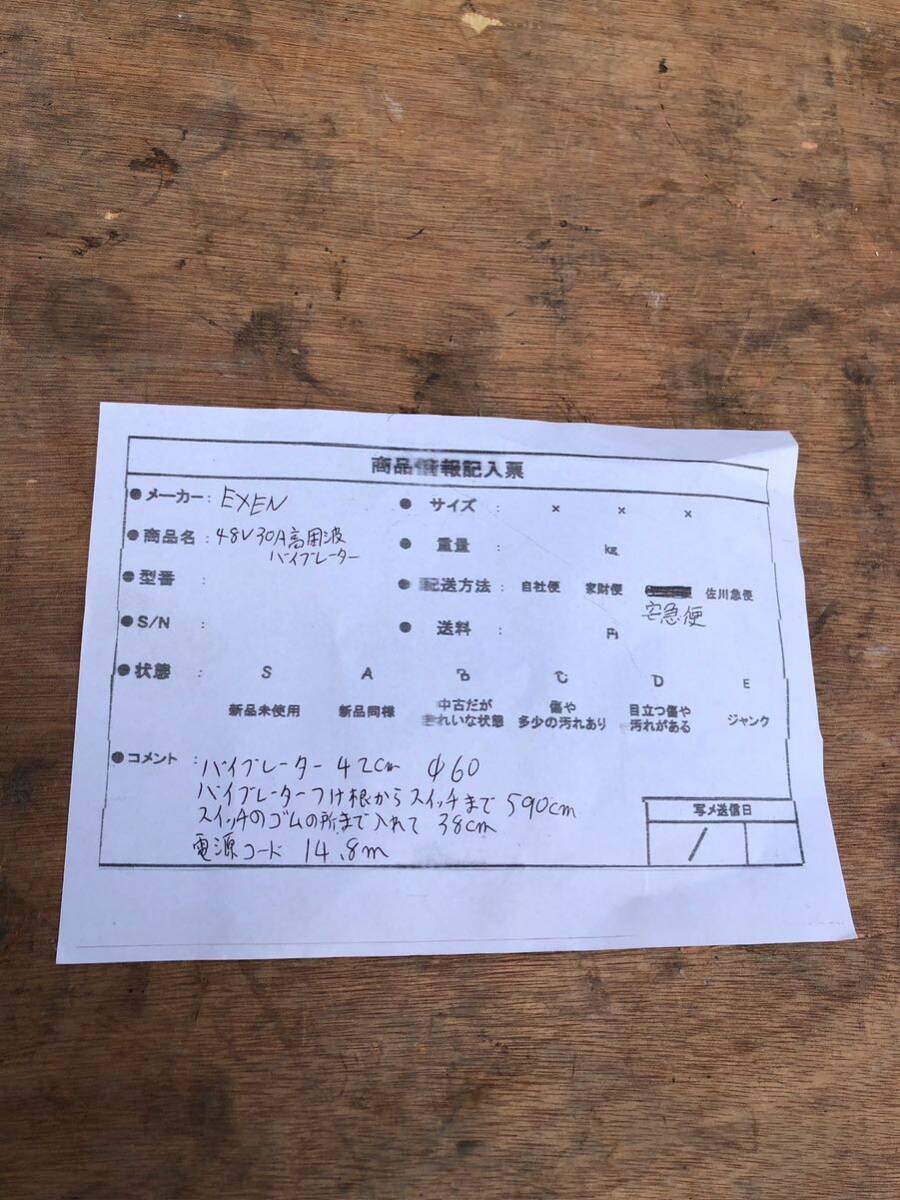 商品情報記入票
●メーカー: EXEN
●商品名: 48V30A高周波
バイブレーター
●型番 :
●S/N :
●サイズ : × × ×
●重量 : kg
●配送方法: 自社便 家財便 佐川急便
宅急便
●送料 : 円
●状態 : S A B C D E
新品未使用 新品同様 中古だが きれいな状態 傷や 多少の汚れあり 目立つ傷や 汚れがある ジャンク
●コメント : バイブレーター 42cm φ60
バイブレーターつけ根からスイッチまで 590cm
スイッチのゴムの所まで入れて 38cm
電源コード 14.8m
写メ送信日
/